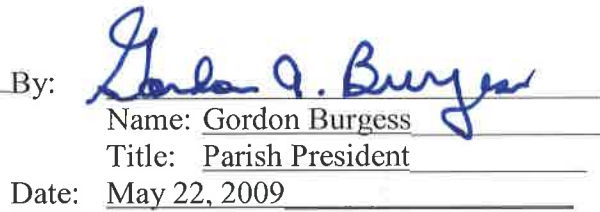 By: Gordon A. Burgess
Name: Gordon Burgess
Title: Parish President
Date: May 22, 2009